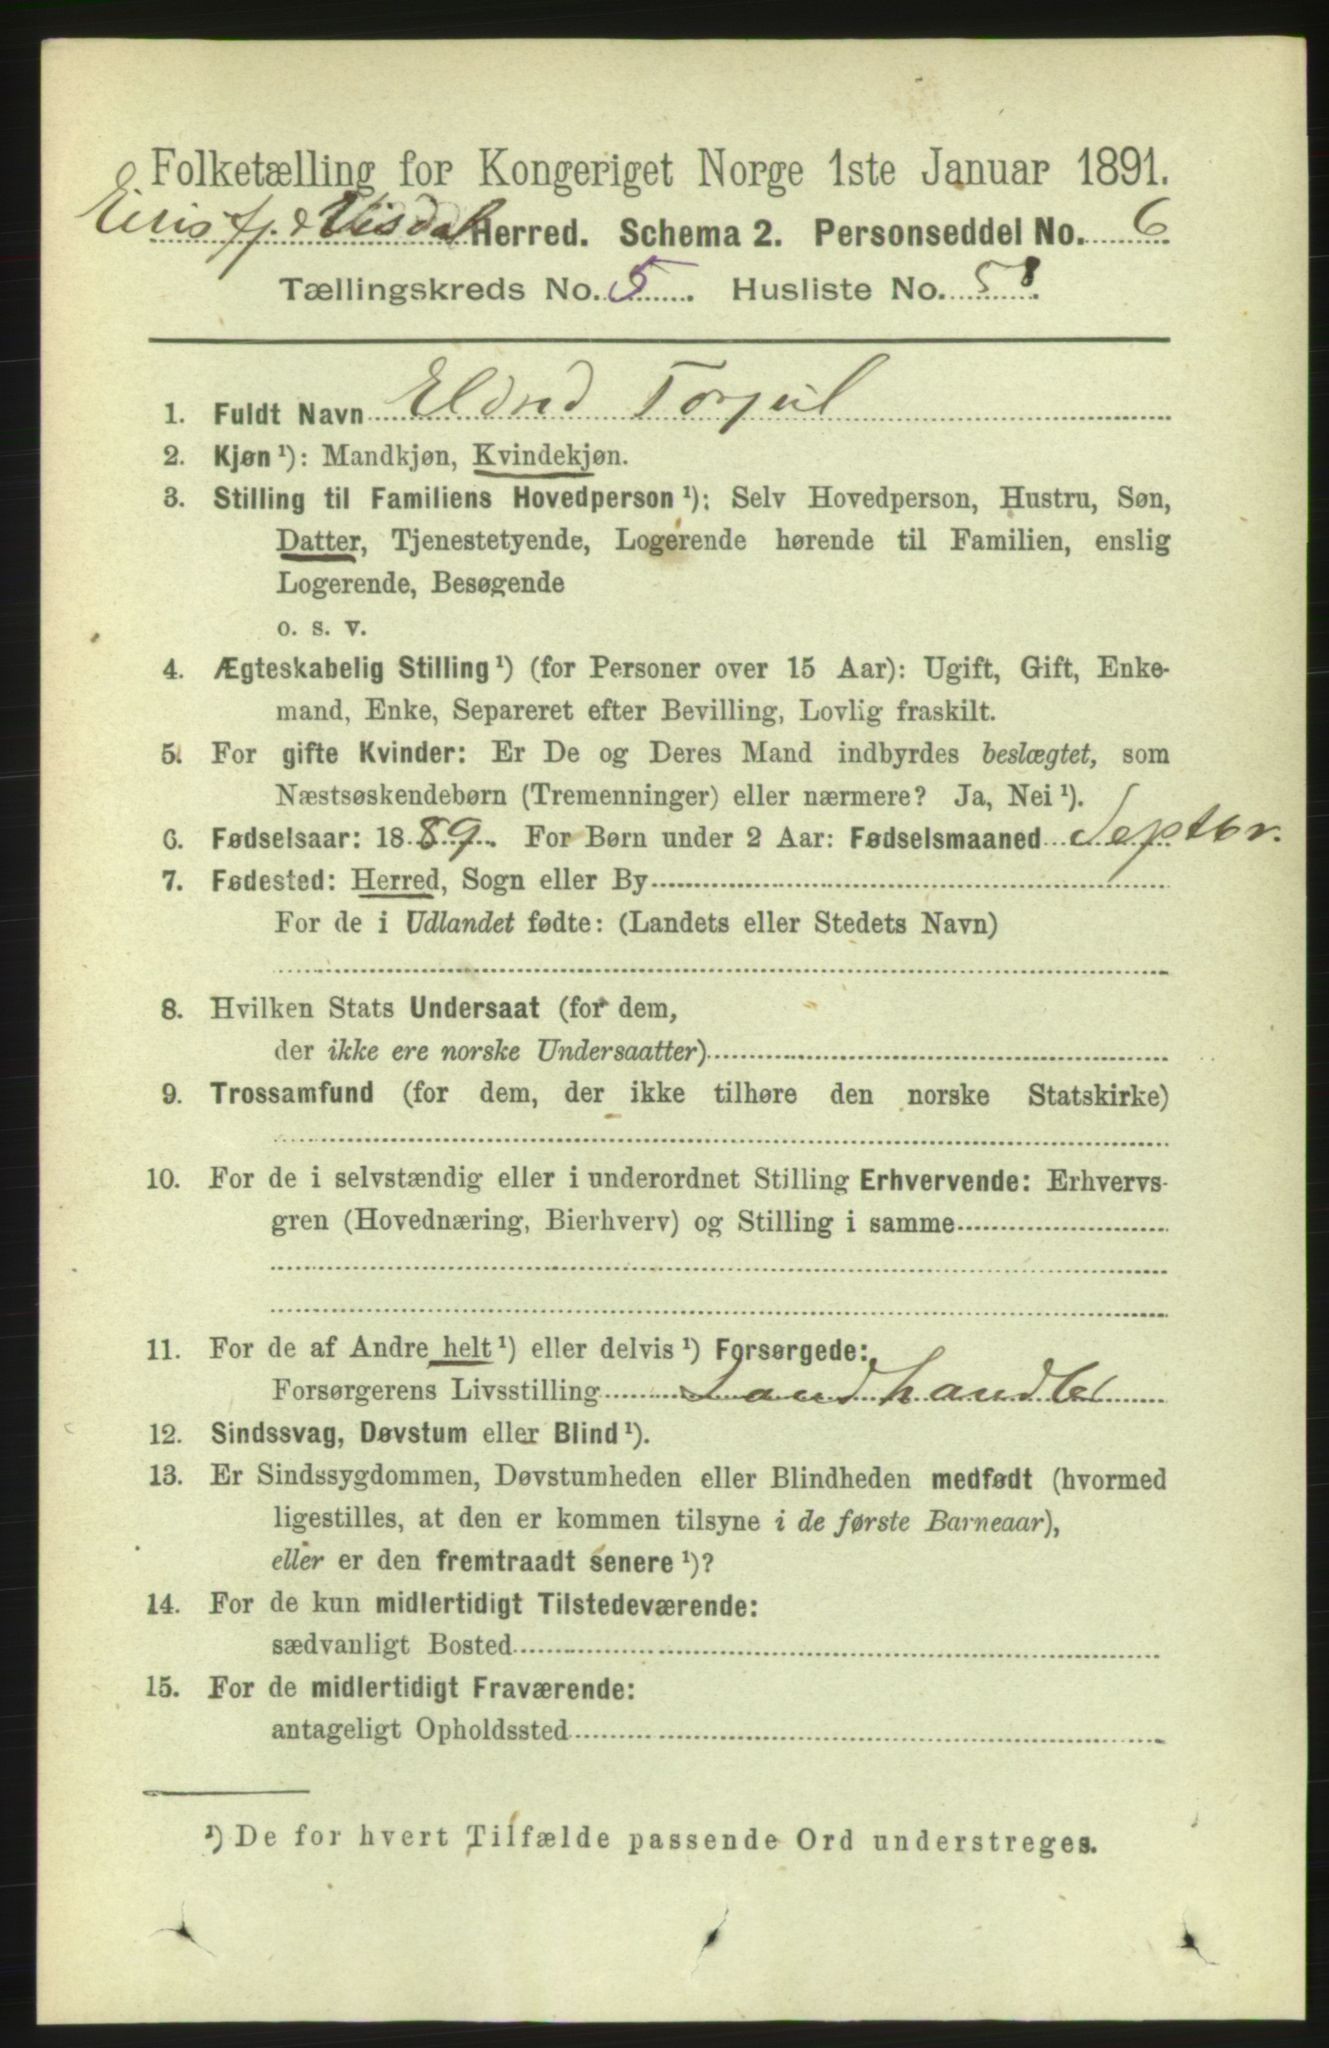 Folketælling for Kongeriget Norge 1ste Januar 1891.
Eirisfj. & Visdal Herred. Schema 2. Personseddel No. 6
Tællingskreds No. 5. Husliste No. 58.
1. Fuldt Navn Eldrid Torjul
2. Kjøn ¹): Mandkjøn, Kvindekjøn.
3. Stilling til Familiens Hovedperson ¹): Selv Hovedperson, Hustru, Søn,
Datter, Tjenestetyende, Logerende hørende til Familien, enslig
Logerende, Besøgende
o. s. v.
4. Ægteskabelig Stilling ¹) (for Personer over 15 Aar): Ugift, Gift, Enke-
mand, Enke, Separeret efter Bevilling, Lovlig fraskilt.
5. For gifte Kvinder: Er De og Deres Mand indbyrdes beslægtet, som
Næstsøskendebørn (Tremenninger) eller nærmere? Ja, Nei ¹).
6. Fødselsaar: 1889. For Børn under 2 Aar: Fødselsmaaned Septbr.
7. Fødested: Herred, Sogn eller By
For de i Udlandet fødte: (Landets eller Stedets Navn)
8. Hvilken Stats Undersaat (for dem,
der ikke ere norske Undersaatter)
9. Trossamfund (for dem, der ikke tilhøre den norske Statskirke)
10. For de i selvstændig eller i underordnet Stilling Erhvervende: Erhvervs-
gren (Hovednæring, Bierhverv) og Stilling i samme
11. For de af Andre helt ¹) eller delvis ¹) Forsørgede:
Forsørgerens Livsstilling Landhandler
12. Sindssvag, Døvstum eller Blind ¹).
13. Er Sindssygdommen, Døvstumheden eller Blindheden medfødt (hvormed
ligestilles, at den er kommen tilsyne i de første Barneaar),
eller er den fremtraadt senere ¹)?
14. For de kun midlertidigt Tilstedeværende:
sædvanligt Bosted
15. For de midlertidigt Fraværende:
antageligt Opholdssted
¹) De for hvert Tilfælde passende Ord understreges.